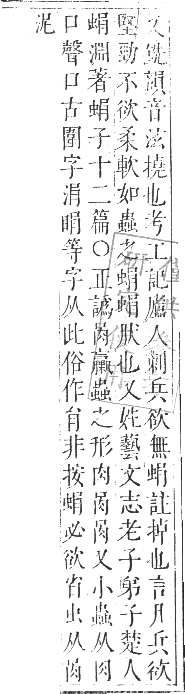 又銑韻音泫撓也考工記廬人刺兵欲無蜎註掉也言凡兵欲
堅勁不欲柔軟如蟲之蜎蜎狀也又姓藝文志老子弟子楚人
蜎淵著蜎子十二篇○正譌肙蠃蟲之形肉肙肙又小蟲从肉
口聲口古圍字涓睊等字从此俗作非按蜎必欲省虫从肙
泥